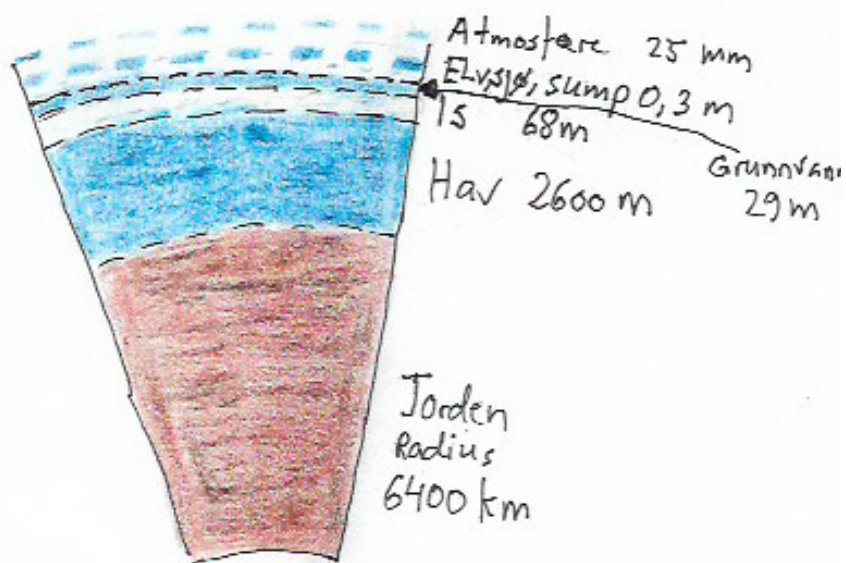 Atmosfære 25 mm
Elv, sjø, sump 0,3 m
Is 68m
Grunnvann
29 m
Hav 2600 m
Jorden
Radius
6400 km